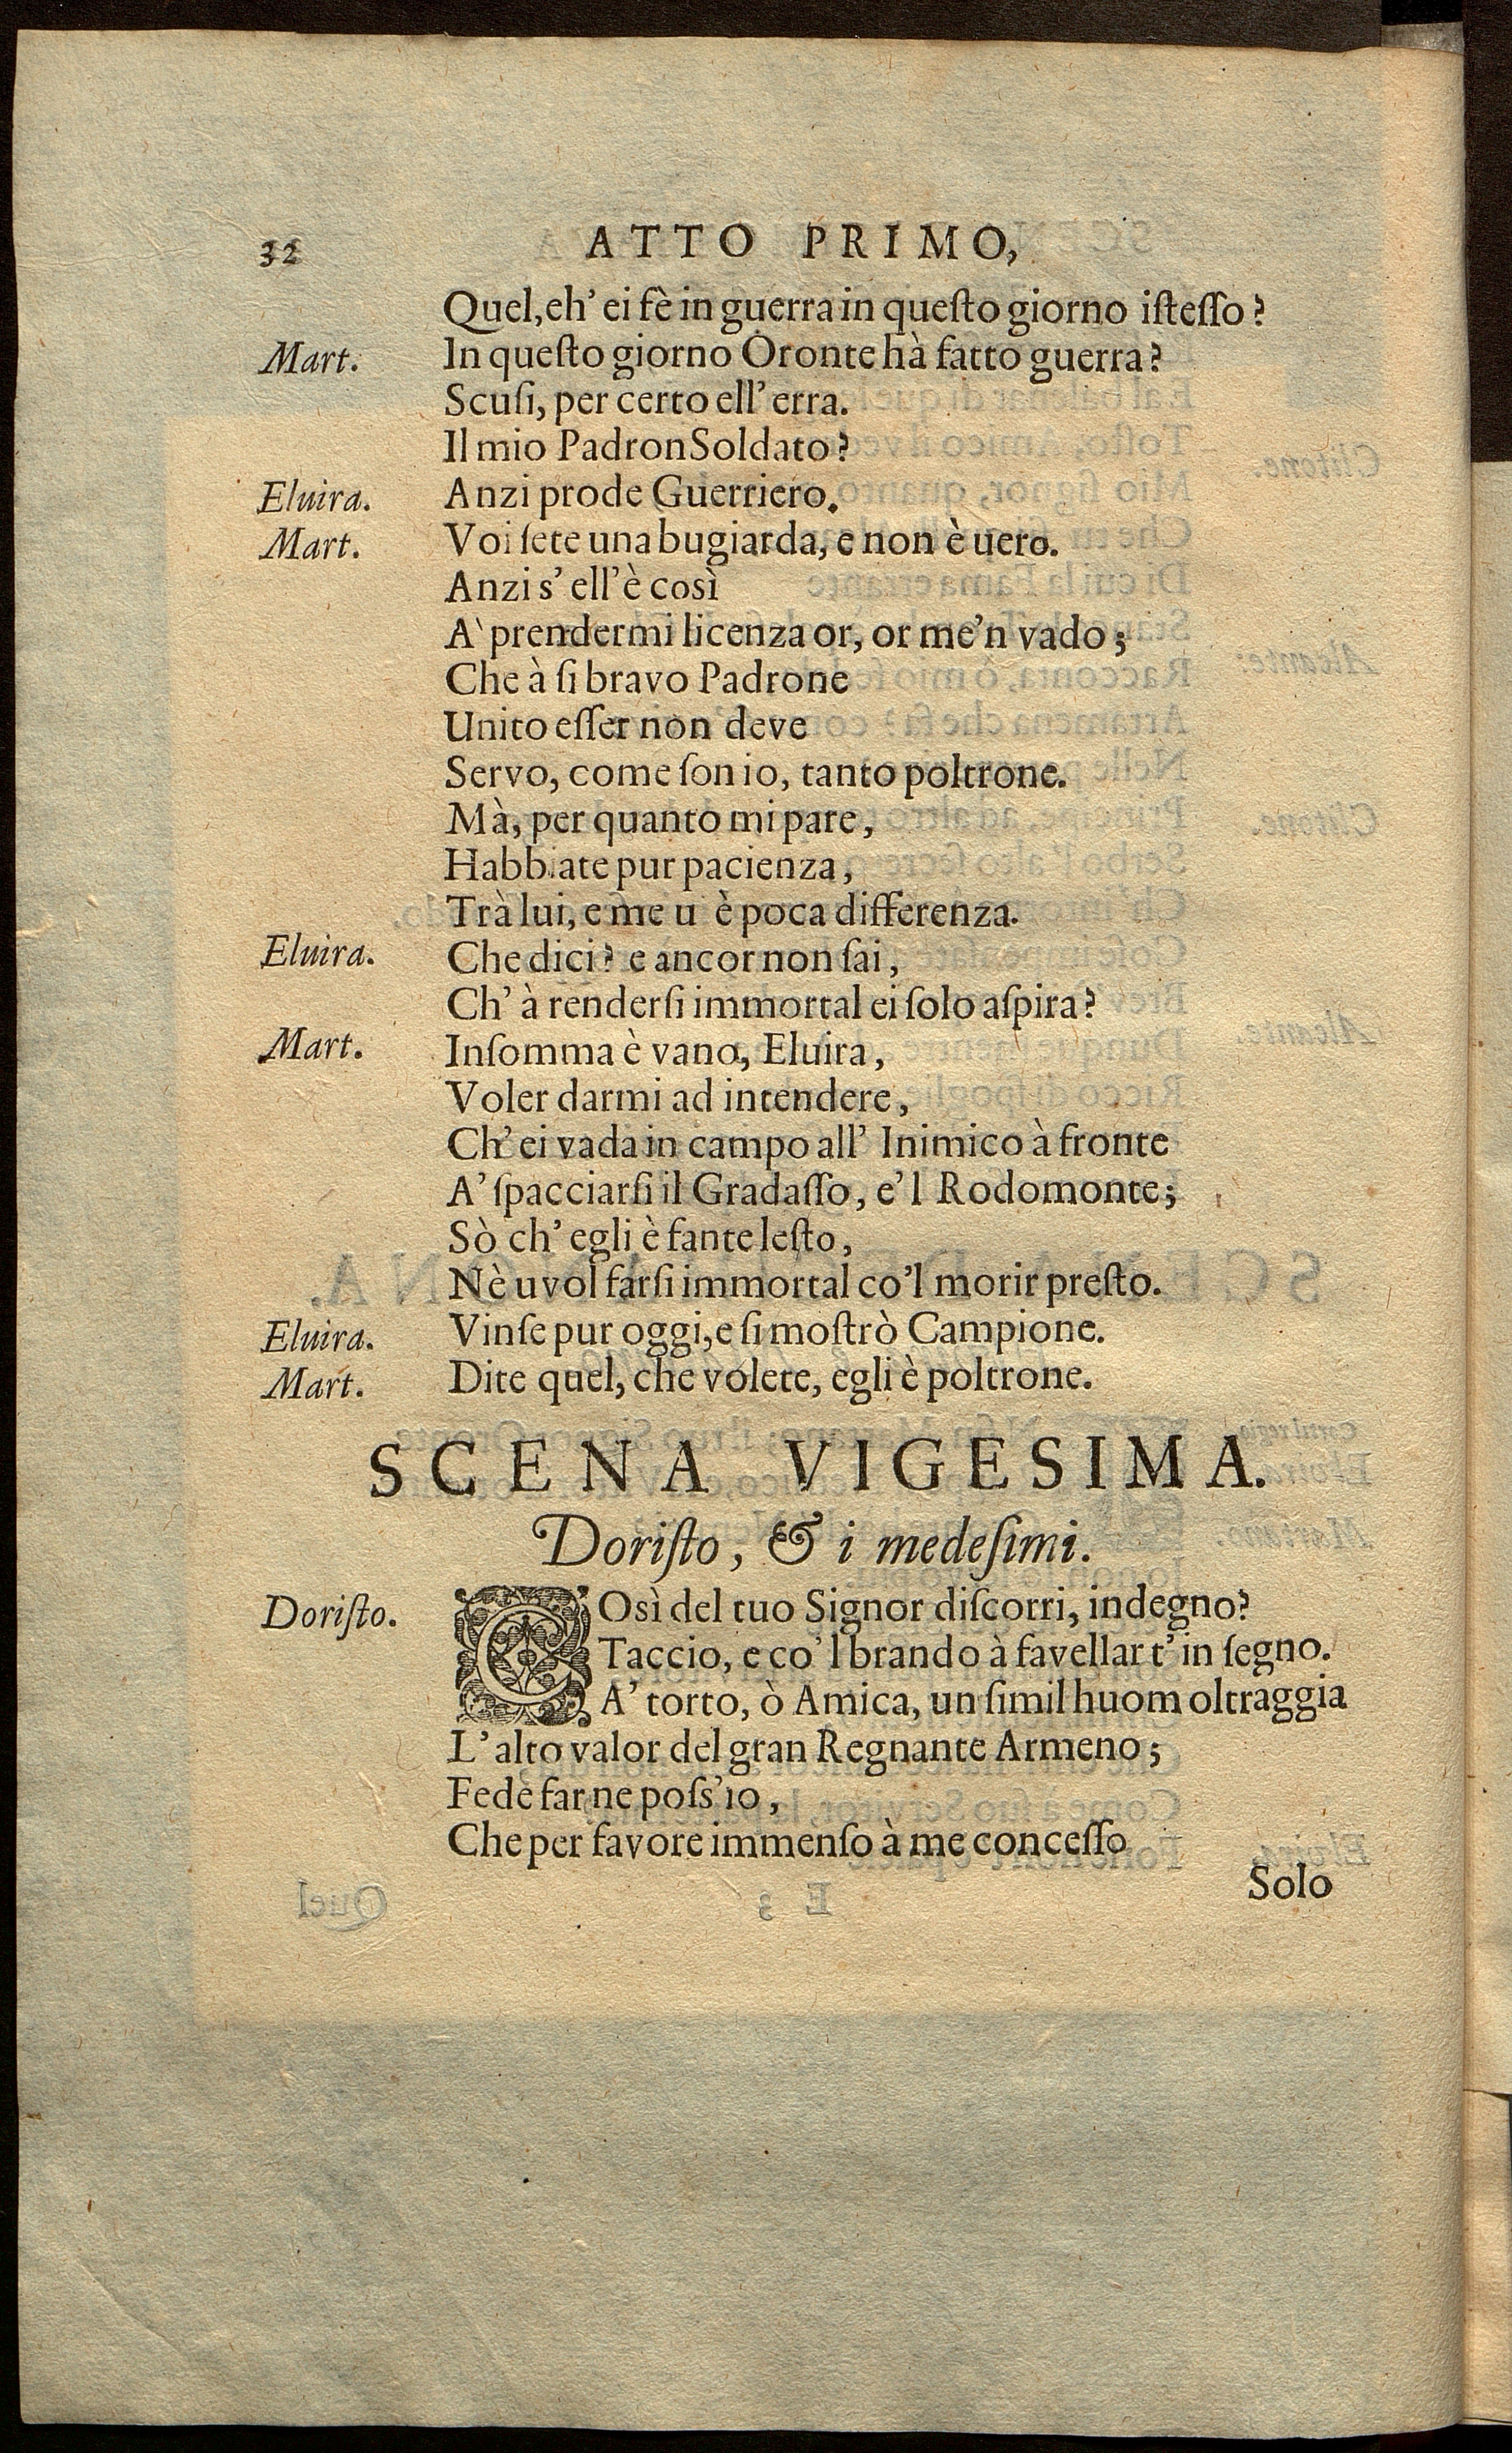 32 ATTO PRIMO,
Quel, eh' ei fè in guerra in queſto giorno iſteſſo?
Mart. In queſto giorno Oronte hà fatto guerra?
Scuſi, per certo ell' erra.
Il mio Padron Soldato?
Eluira. Anzi prode Guerriero.
Mart. Voi ſete una bugiarda, e non è uero.
Anzi s' ell' è così
A' prendermi licenza or, or me'n vado;
Che à ſi bravo Padrone
Unito eſſer non deve
Servo, come ſon io, tanto poltrone.
Mà, per quanto mi pare,
Habbiate pur pacienza,
Trà lui, e me u è poca differenza.
Eluira. Che dici? e ancor non ſai,
Ch' à renderſi immortal ei ſolo aſpira?
Mart. Inſomma è vano, Eluira,
Voler darmi ad intendere,
Ch' ei vada in campo all' Inimico à fronte
A' ſpacciarſi il Gradaſſo, e'l Rodomonte;
Sò ch' egli è fante leſto,
Nè uvol farſi immortal co'l morir preſto.
Eluira. Vinſe pur oggi, e ſi moſtrò Campione.
Mart. Dite quel, che volete, egli è poltrone.
SCENA VIGESIMA.
Doriſto, & i medeſimi.
Doriſto. COsì del tuo Signor diſcorri, indegno?
Taccio, e co'l brando à favellar t' in ſegno.
A' torto, ò Amica, un ſimil huom oltraggia
L' alto valor del gran Regnante Armeno;
Fede far ne poſs' io,
Che per favore immenſo à me conceſſo
Solo